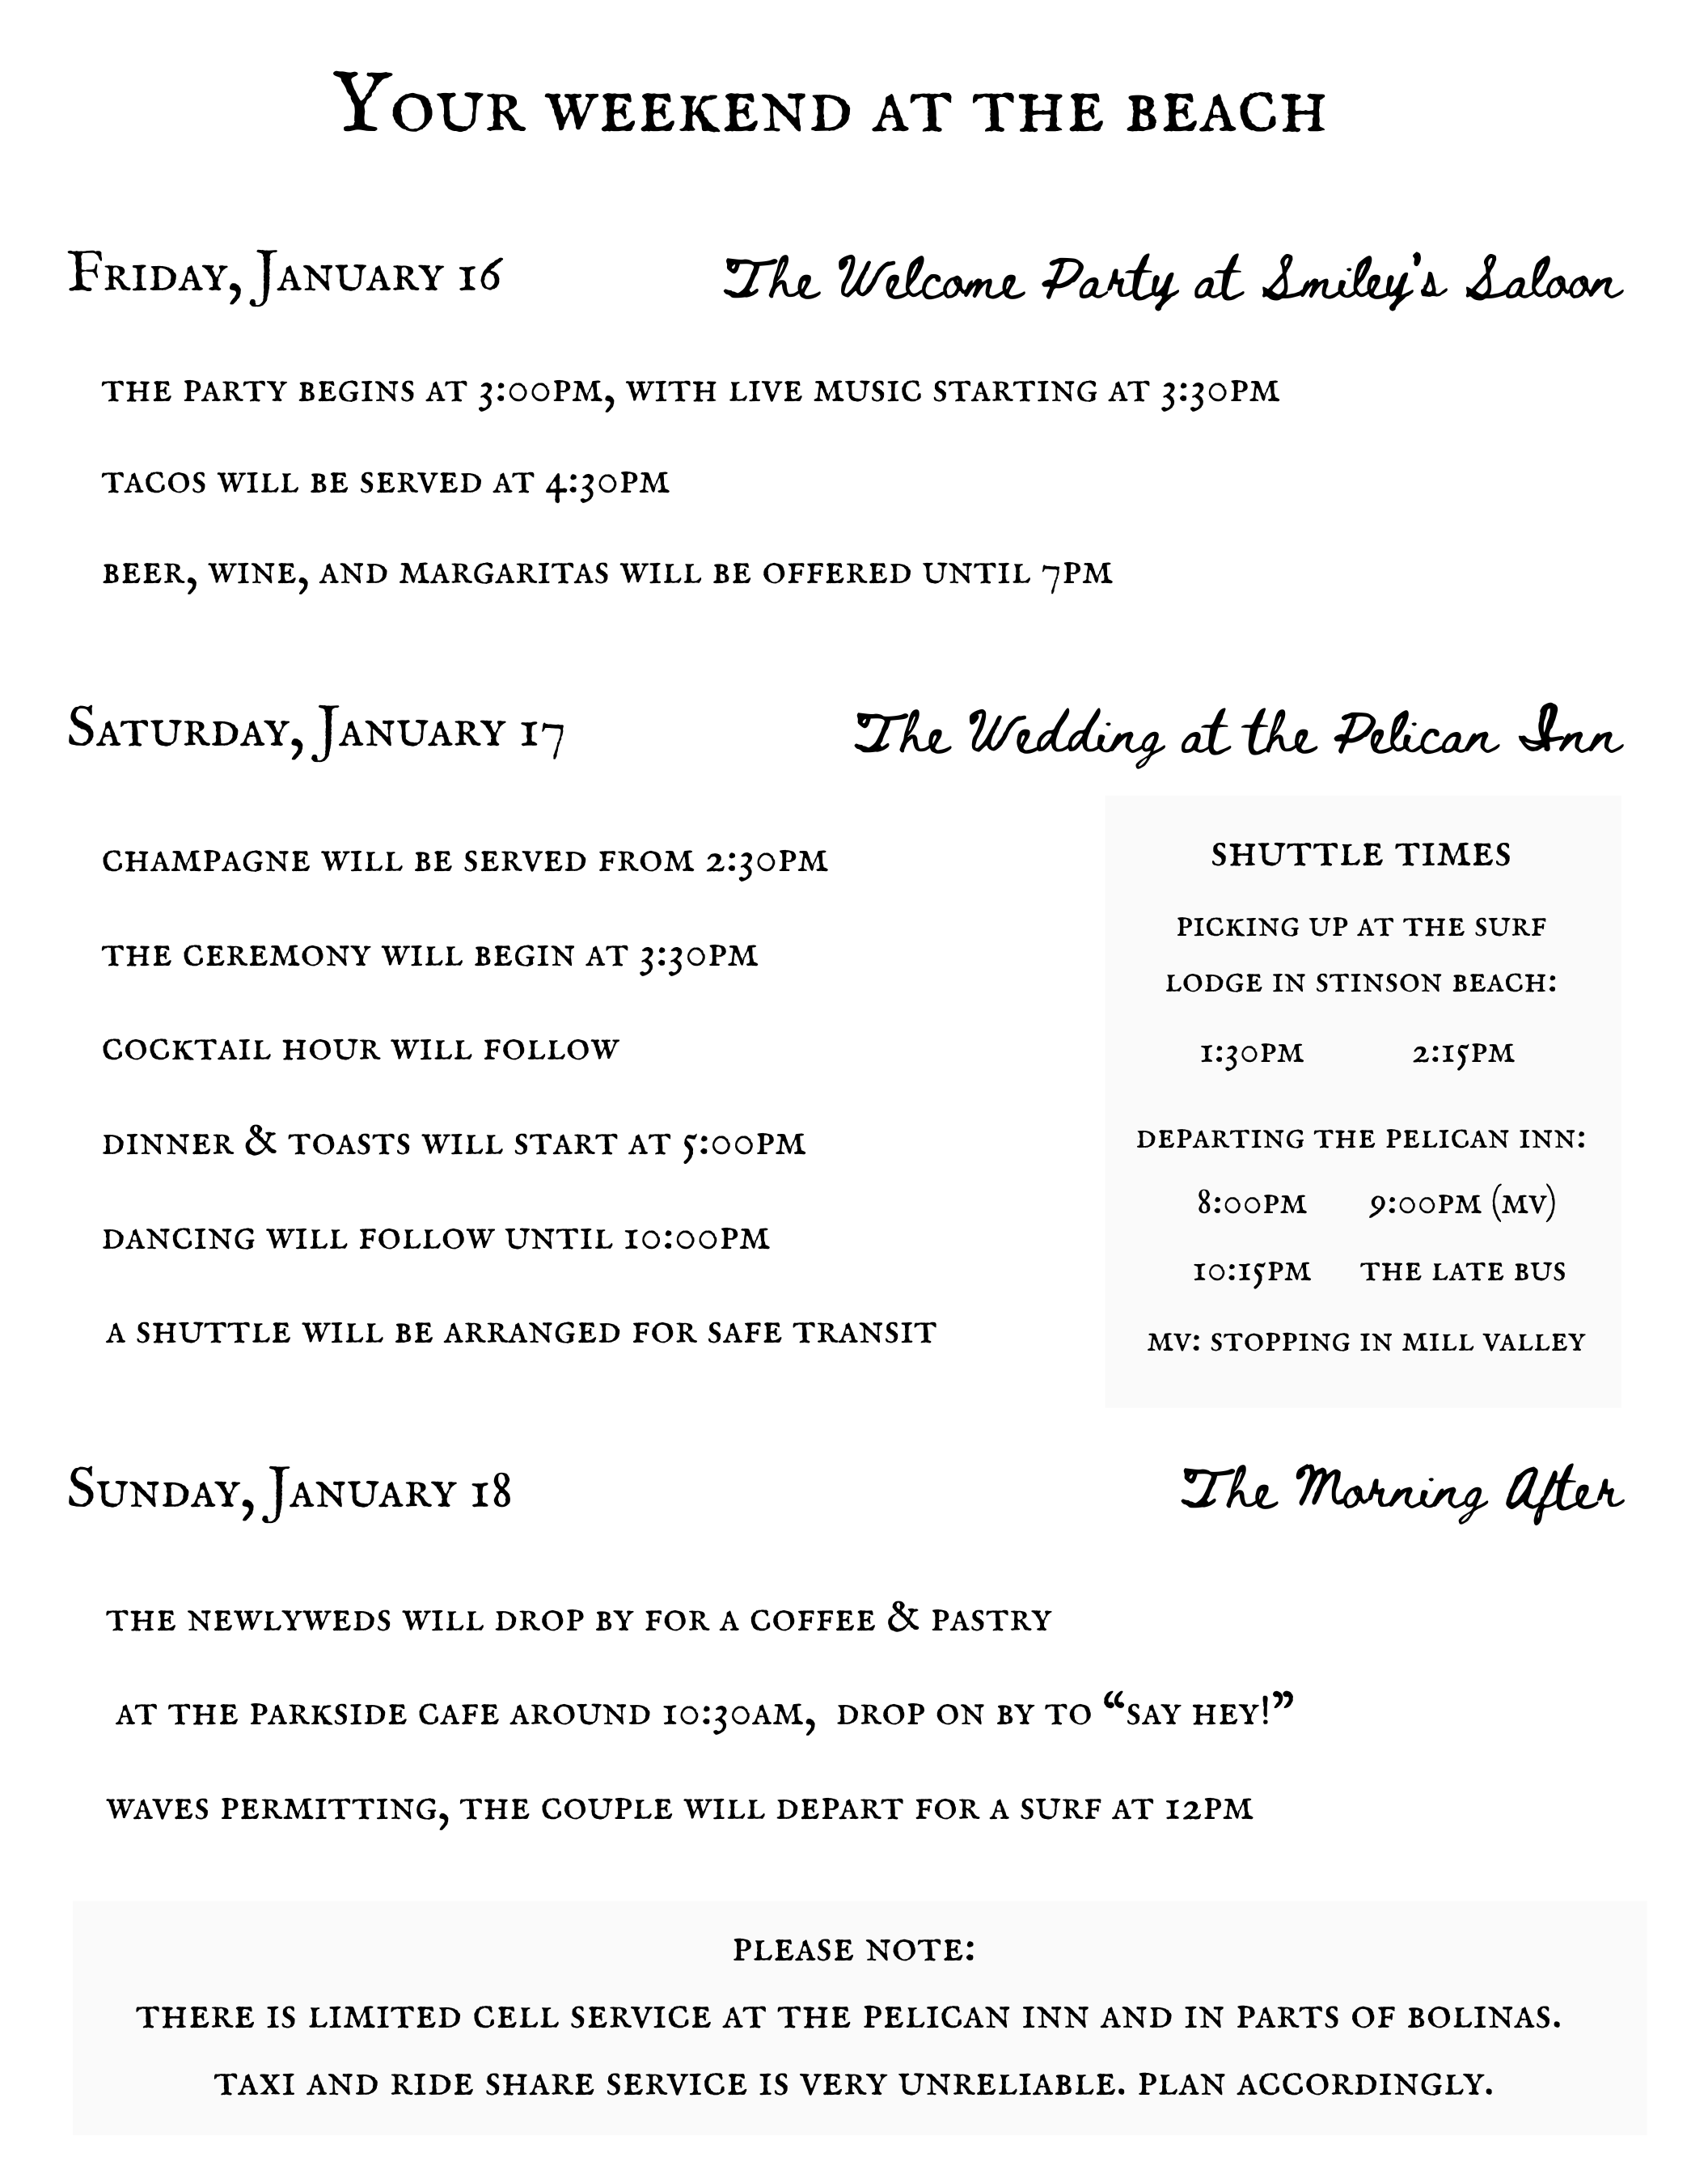 Your weekend at the beach
Friday, January 16
The Welcome Party at Smiley's Saloon
the party begins at 3:00pm, with live music starting at 3:30pm
tacos will be served at 4:30pm
beer, wine, and margaritas will be offered until 7pm
Saturday, January 17
The Wedding at the Pelican Inn
champagne will be served from 2:30pm
the ceremony will begin at 3:30pm
cocktail hour will follow
dinner & toasts will start at 5:00pm
dancing will follow until 10:00pm
a shuttle will be arranged for safe transit
shuttle times
picking up at the surf
lodge in stinson beach:
1:30pm 2:15pm
departing the pelican inn:
8:00pm 9:00pm (mv)
10:15pm the late bus
mv: stopping in mill valley
Sunday, January 18
The Morning After
the newlyweds will drop by for a coffee & pastry
at the parkside cafe around 10:30am, drop on by to “say hey!”
waves permitting, the couple will depart for a surf at 12pm
please note:
there is limited cell service at the pelican inn and in parts of bolinas.
taxi and ride share service is very unreliable. plan accordingly.